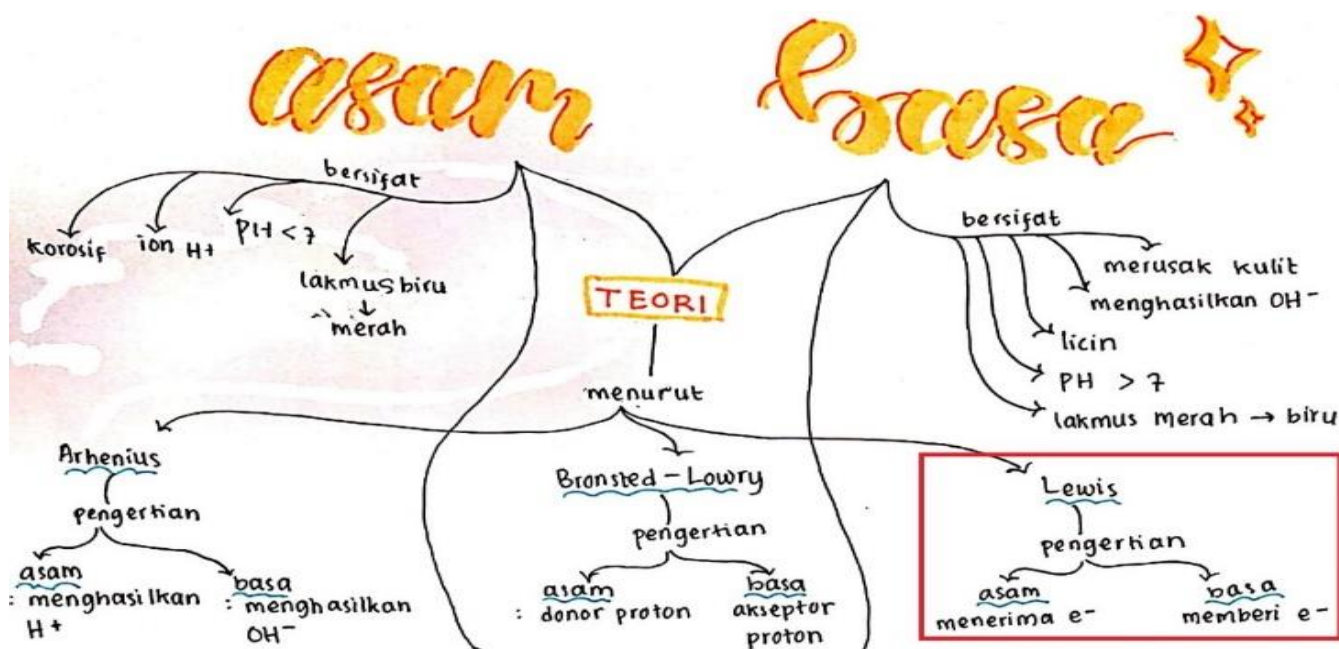 asam
basa
bersifat
korosif
ion H+
PH < 7
lakmus biru
↓
merah
bersifat
merusak kulit
menghasilkan OH-
licin
PH > 7
lakmus merah → biru
TEORI
menurut
Arhenius
pengertian
asam
: menghasilkan
H+
basa
: menghasilkan
OH-
Bronsted - Lowry
pengertian
asam
: donor proton
basa
akseptor
proton
Lewis
pengertian
asam
menerima e-
basa
memberi e-